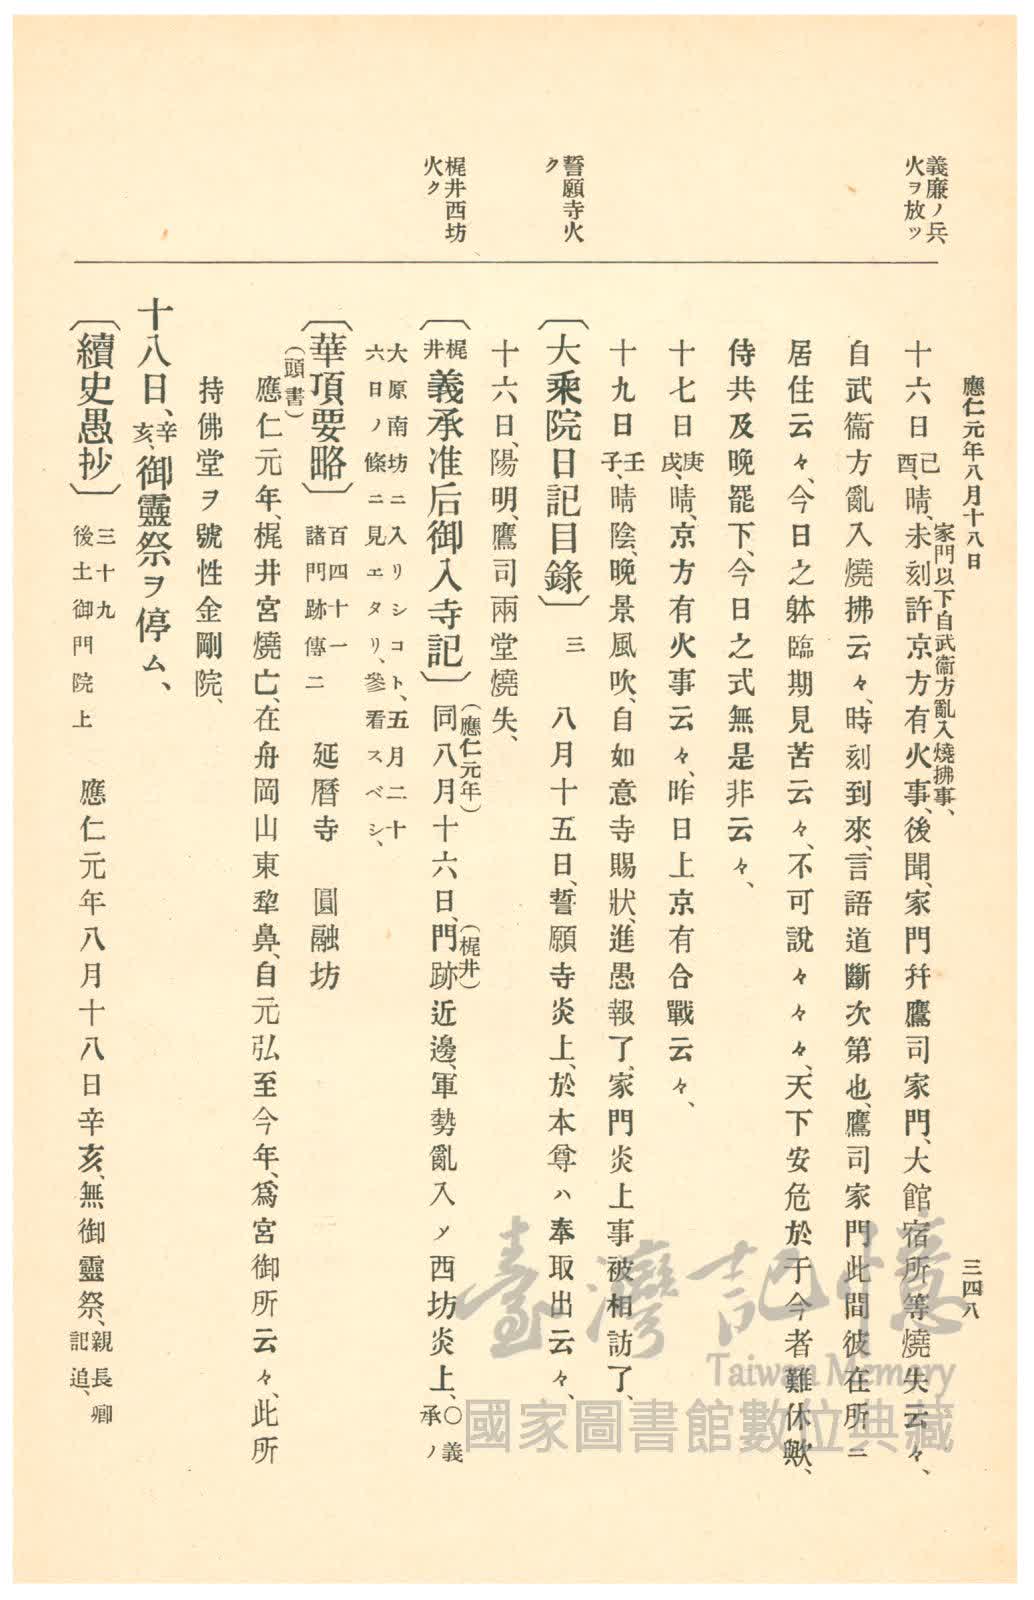 應仁元年八月十八日
三四八
義廉ノ兵、
火ヲ放ツ
誓願寺火
ク
梶井西坊
火ク
十六日、己酉、晴、未刻許京方有火事、後聞、家門幷鷹司家門、大館宿所等燒失云々、
家門以下自武衞方亂入燒拂事、
自武衞方亂入燒拂云々、時刻到來、言語道斷次第也、鷹司家門此間彼在所ニ
居住云々、今日之躰臨期見苦云々、不可說々々々、天下安危於于今者難休歟、
侍共及晚罷下、今日之式無是非云々、
十七日、庚戌、晴、京方有火事云々、昨日上京有合戰云々、
十九日、壬子、晴陰、晚景風吹、自如意寺賜狀、進愚報了、家門炎上事被相訪了、
〔大乘院日記目錄〕三 八月十五日、誓願寺炎上、於本尊ハ奉取出云々、
十六日、陽明、鷹司兩堂燒失、
〔梶井義承准后御入寺記〕同八月十六日、門跡近邊、軍勢亂入メ西坊炎上、○義承ノ
（應仁元年）
（梶井）
大原南坊ニ入リシコト、五月二十
六日ノ條ニ見エタリ、參看スベシ、
〔華頂要略〕百四十一 諸門跡傳二 延曆寺 圓融坊
（頭書）
應仁元年、梶井宮燒亡、在舟岡山東犂鼻、自元弘至今年、爲宮御所云々、此所
持佛堂ヲ號性金剛院、
十八日、辛亥、御靈祭ヲ停ム、
〔續史愚抄〕三十九 後土御門院上 應仁元年八月十八日辛亥、無御靈祭、親長卿記追、
臺灣記憶
Taiwan Memory
國家圖書館數位典藏